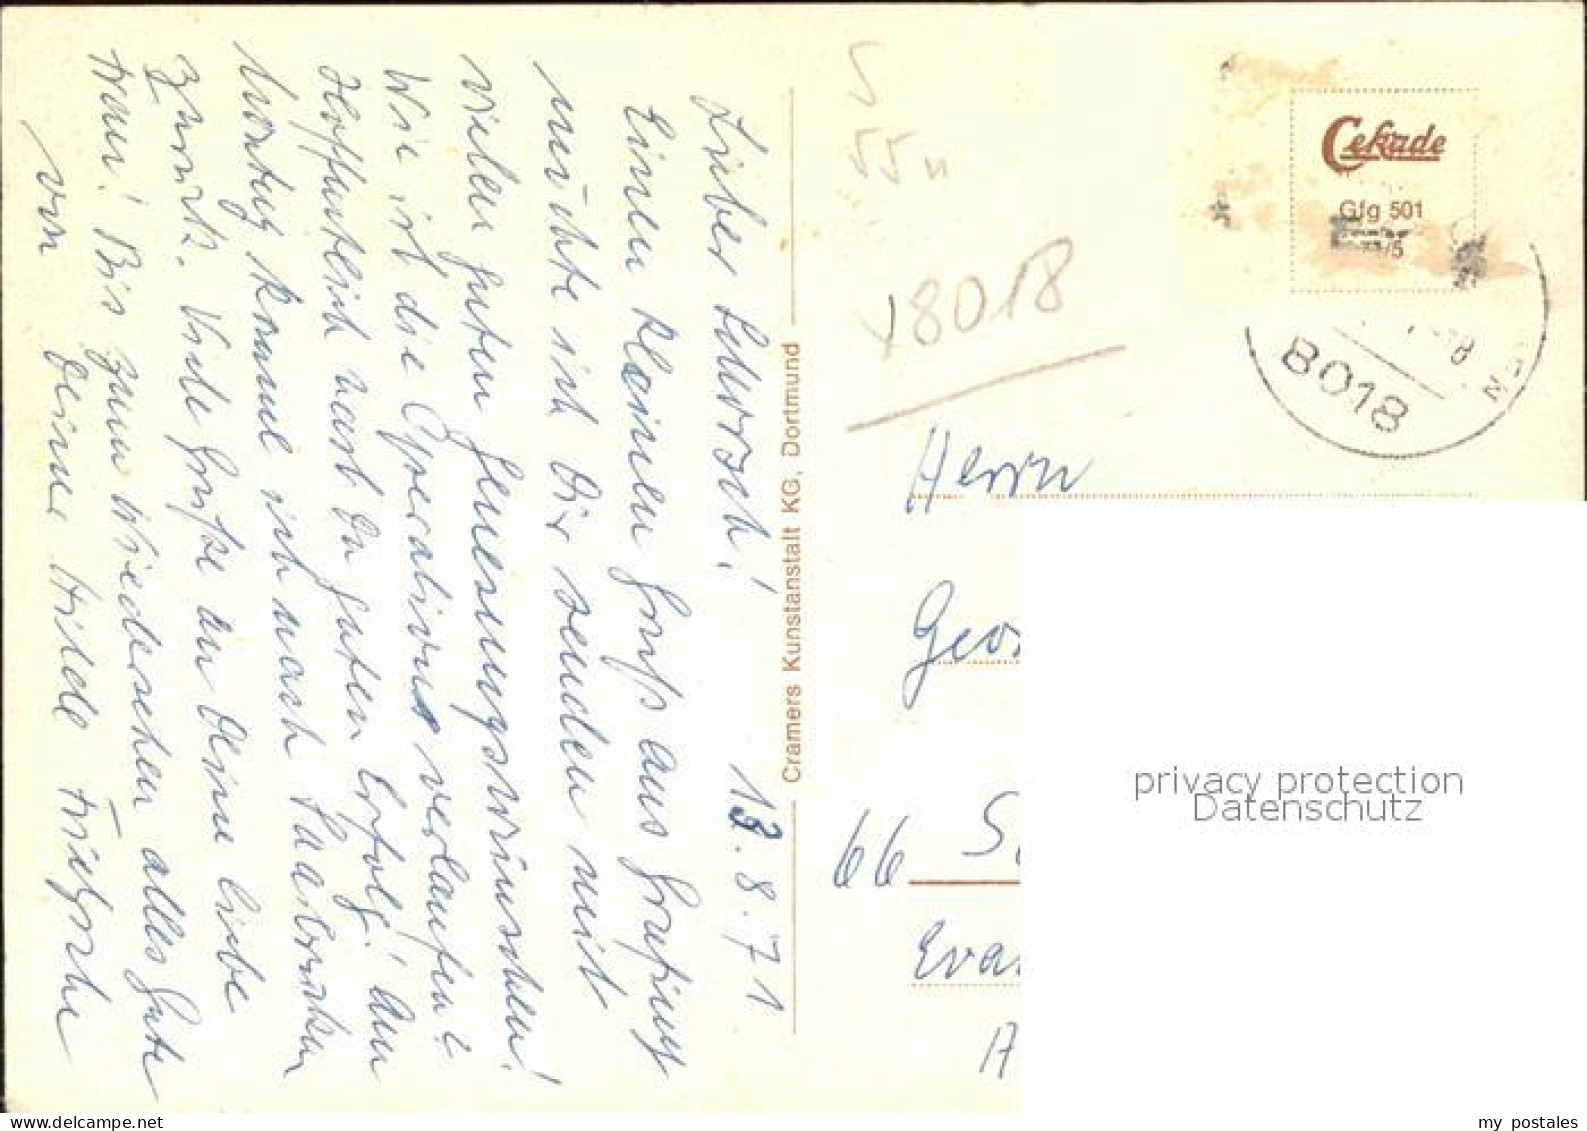 Lieber Schorsch!
13.8.71
Einen kleinen Gruß aus Grafing
möchte ich Dir senden mit
vielen guten Genesungswünschen!
Wie ist die Operation verlaufen?
Hoffentlich hast Du guten Erfolg! Am
Montag komme ich nach Saarbrücken
zurück. Viele Grüße an Deine liebe
Frau! Bis zum Wiedersehen alles Gute
von Deine Hilde
Cramers Kunstanstalt KG, Dortmund
Cekade
Gfg 501
/5
8018
S
55
8018
Herrn
Geor
66 S
Eva
A
privacy protection
Datenschutz
www.delcampe.net
my_postales